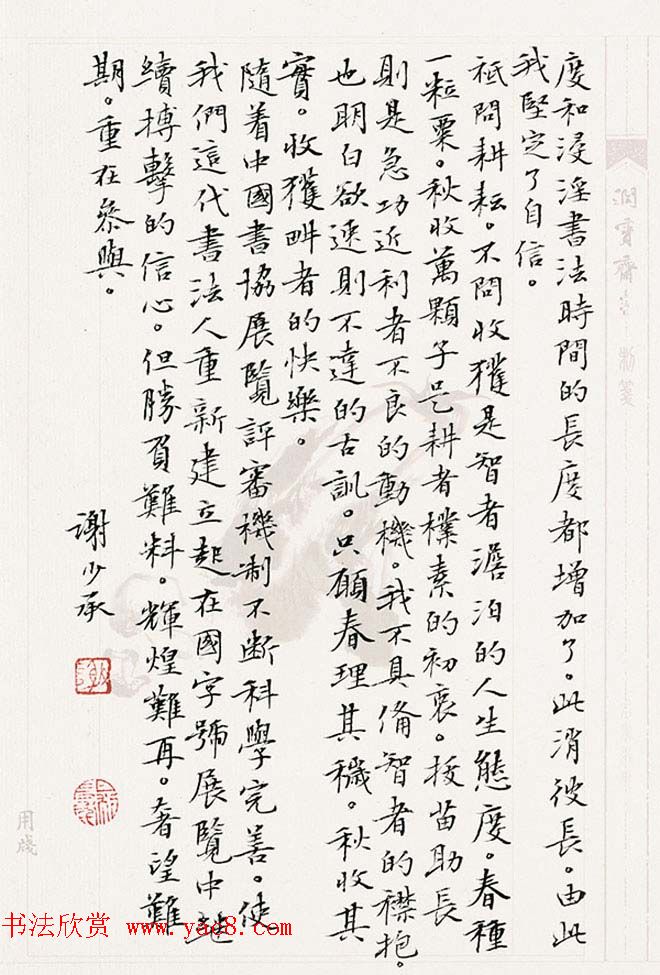 度和浸淫書法時間的長度都增加了。此消彼長。由此
我堅定了自信。
祇問耕耘。不問收穫是智者澹泊的人生態度。春種
一粒粟。秋收萬顆子是耕者樸素的初衷。拔苗助長
則是急功近利者不良的動機。我不具備智者的襟抱。
也明白欲速則不達的古訓。只願春理其穢。秋收其
實。收獲畊者的快樂。
隨着中國書協展覽評審機制不斷科學完善。使
我們這代書法人重新建立起在國字號展覽中繼
續搏擊的信心。但勝負難料。輝煌難再。奢望難
期。重在參與。
謝少承
用牋
书法欣赏 www.yac8.com